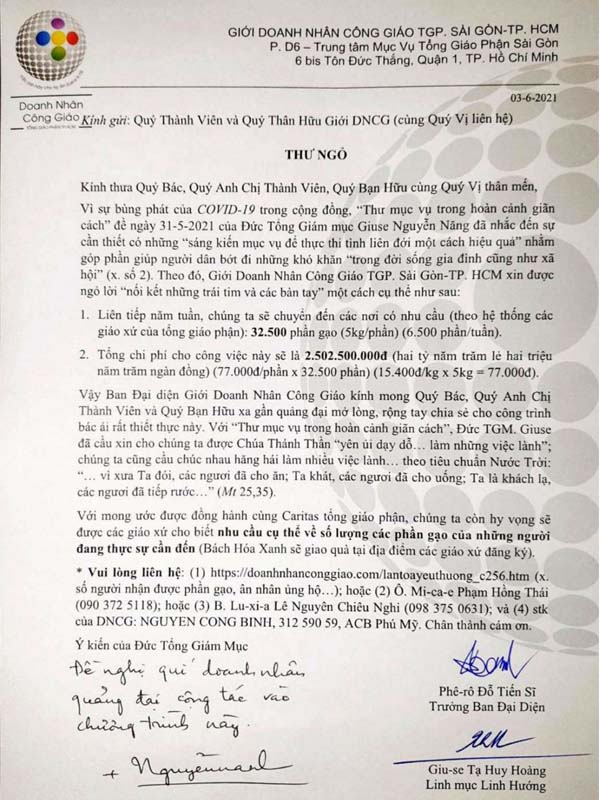 GIỚI DOANH NHÂN CÔNG GIÁO TGP. SÀI GÒN-TP. HCM
P. D6 – Trung tâm Mục Vụ Tổng Giáo Phận Sài Gòn
6 bis Tôn Đức Thắng, Quận 1, TP. Hồ Chí Minh
Doanh Nhân
Công Giáo
TỔNG GIÁO PHẬN TP.HCM
03-6-2021
Kính gửi: Quý Thành Viên và Quý Thân Hữu Giới DNCG (cùng Quý Vị liên hệ)
THƯ NGỎ
Kính thưa Quý Bác, Quý Anh Chị Thành Viên, Quý Bạn Hữu cùng Quý Vị thân mến,
Vì sự bùng phát của COVID-19 trong cộng đồng, “Thư mục vụ trong hoàn cảnh giãn
cách” đề ngày 31-5-2021 của Đức Tổng Giám mục Giuse Nguyễn Năng đã nhắc đến sự
cần thiết có những “sáng kiến mục vụ để thực thi tình liên đới một cách hiệu quả” nhằm
góp phần giúp người dân bớt đi những khó khăn “trong đời sống gia đình cũng như xã
hội” (x. số 2). Theo đó, Giới Doanh Nhân Công Giáo TGP. Sài Gòn-TP. HCM xin được
ngỏ lời “nối kết những trái tim và các bàn tay” một cách cụ thể như sau:
1. Liên tiếp năm tuần, chúng ta sẽ chuyển đến các nơi có nhu cầu (theo hệ thống các
giáo xứ của tổng giáo phận): 32.500 phần gạo (5kg/phần) (6.500 phần/tuần).
2. Tổng chi phí cho công việc này sẽ là 2.502.500.000đ (hai tỷ năm trăm lẻ hai triệu
năm trăm ngàn đồng) (77.000đ/phần x 32.500 phần) (15.400đ/kg x 5kg = 77.000đ).
Vậy Ban Đại diện Giới Doanh Nhân Công Giáo kính mong Quý Bác, Quý Anh Chị
Thành Viên và Quý Bạn Hữu xa gần quảng đại mở lòng, rộng tay chia sẻ cho công trình
bác ái rất thiết thực này. Với “Thư mục vụ trong hoàn cảnh giãn cách”, Đức TGM. Giuse
đã cầu xin cho chúng ta được Chúa Thánh Thần “yên ủi dạy dỗ… làm những việc lành”;
chúng ta cũng cầu chúc nhau hăng hái làm nhiều việc lành… theo tiêu chuẩn Nước Trời:
“… vì xưa Ta đói, các ngươi đã cho ăn; Ta khát, các ngươi đã cho uống; Ta là khách lạ,
các ngươi đã tiếp rước…” (Mt 25,35).
Với mong ước được đồng hành cùng Caritas tổng giáo phận, chúng ta còn hy vọng sẽ
được các giáo xứ cho biết nhu cầu cụ thể về số lượng các phần gạo của những người
đang thực sự cần đến (Bách Hóa Xanh sẽ giao quà tại địa điểm các giáo xứ đăng ký).
* Vui lòng liên hệ: (1) https://doanhnhanconggiao.com/lantoayeuthuong_c256.htm (x.
số người nhận được phần gạo, ân nhân ủng hộ…); hoặc (2) Ô. Mi-ca-e Phạm Hồng Thái
(090 372 5118); hoặc (3) B. Lu-xi-a Lê Nguyên Chiêu Nghi (098 375 0631); và (4) stk
của DNCG: NGUYEN CONG BINH, 312 590 59, ACB Phú Mỹ. Chân thành cám ơn.
Ý kiến của Đức Tổng Giám Mục
Đề nghị quí doanh nhân
quảng đại cộng tác vào
chương trình này.
+ Nguyễnnanh
Phê-rô Đỗ Tiến Sĩ
Trưởng Ban Đại Diện
Giu-se Tạ Huy Hoàng
Linh mục Linh Hướng